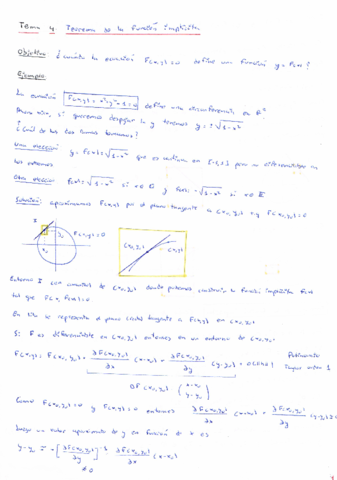 Tema 4 Teorema de la función implícita
Objetivo: ¿cuándo la ecuación F(x,y)=0 define una función y=f(x)?
Ejemplo:
La ecuación F(x,y)=x²+y²-1=0 define una circunferencia en R²
Ahora bien, si queremos despejar la y tenemos y=±√1-x²
¿Cuál de las dos ramas tomamos?
Una elección: y=f(x)=√1-x² que es continua en [-1,1] pero no diferenciable en
los extremos
Otra elección: f(x)=√1-x² si x∈Q y f(x)=-√1-x² si x∉Q
Solución: aproximamos F(x,y) por el plano tangente a (x₀,y₀) t.q F(x₀,y₀)=0
F(x,y)=0
y₀
x₀
(x₀,y₀)
(x,y)
Entorno I con centro de (x₀,y₀) donde podemos construir la función implícita f(x)
tal que F(x,f(x))=0
En se representa el plano tangente a F(x,y) en (x₀,y₀)
Si F es diferenciable en (x₀,y₀) entonces en un entorno de (x₀,y₀)
F(x,y)=F(x₀,y₀)+∂F(x₀,y₀)/∂x (x-x₀)+∂F(x₀,y₀)/∂y (y-y₀)+ Polinomio
Taylor orden 1
DF(x₀,y₀) (x-x₀ y-y₀)
Como F(x₀,y₀)=0 y F(x,y)=0 entonces ∂F(x₀,y₀)/∂x (x-x₀)+∂F(x₀,y₀)/∂y (y-y₀)≈0
Luego un valor aproximado de y en función de x es
y-y₀ ≈ -[∂F(x₀,y₀)/∂y]⁻¹ ∂F(x₀,y₀)/∂x (x-x₀)
≠0